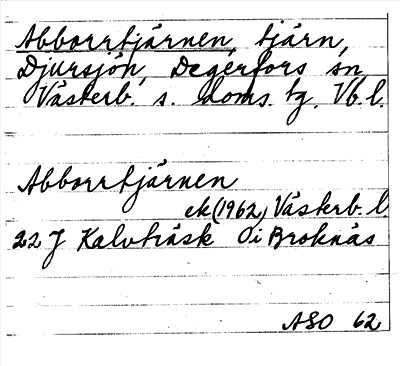 Abborrtjärnen, tjärn,
Djursjön, Degerfors sn,
Västerb. s. doms. tg. Vb. l.
Abborrtjärnen
ek (1962) Västerb. l
22 J Kalvträsk i Broknäs
ASO 62